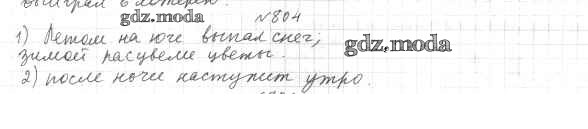 выиграл в лотерею.
gdz.moda №804
1) Летом на юге выпал снег; gdz.moda
зимой расцвели цветы.
2) после ночи наступит утро.